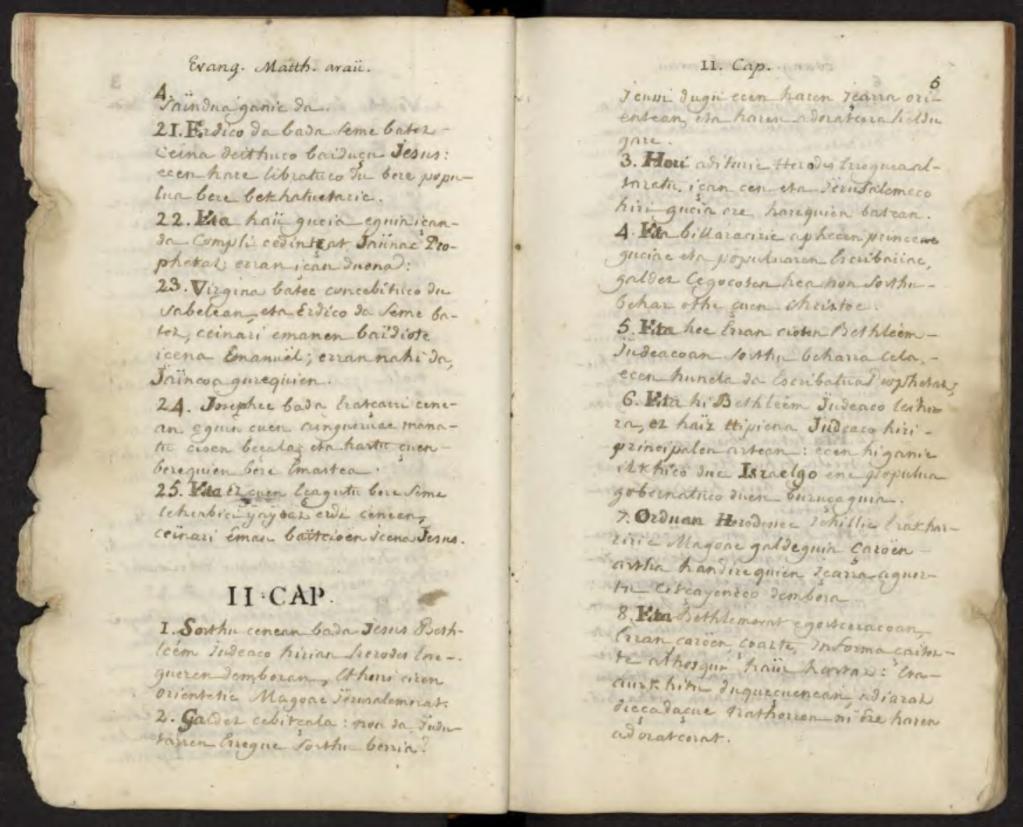 Evang. Matth. araü.
4.
Jaïndua ganic da.
21. Erdico da bada seme batez
icena deithuco baiduçu Jesus:
ecen hare libratuco du bere popu-
lua bere bekhatuetaric.
22. Eta haü gucia eguin içan
da compli cedinçat Jaünac Pro-
phetaz erran içan duena:
23. Virgina batec concebituco du
sabelean, eta Erdico da seme ba-
tez, ceinari emanen baïdiote
icena Emanuël; erran nahi da,
Jaincoa gurequien.
24. Josephec bada iratcarri cene-
an eguin cuen aingueruac mana-
tu cioen beçala; eta hartu çuen
berequien bere Emaztea.
25. Eta ez çuen eçagutu bere seme
lehenbici
ceinari eman baitcioen icena Jesus.
II. CAP.
1. Sorthu cenean bada Jesus Beth-
leém Judeaco hirian Herodes erre-
gueren demboran, ethorri ciren
orientetic Magoac Jerusalemerat.
2. Galdez cebiltçala: non da Judu-
taren Erregue sorthu berria?
II. Cap.
5
icussi dugu ecen haren içarra ori-
entean, eta haren adoratcera heldu
gare.
3. Hori adituric Herodes Erregue al-
taratu içan cen eta Jerusalemeco
hiri gucia ere harequien batean.
4. Eta bilharaciric aphecen princeac
guciac eta populuaren Escribaüac,
galdez cegocoten hea non sorthu
behar othe çuen Christoc.
5. Eta hec Erran cioten Bethleém
Judeacoan sorthu beharra cela,
ecen hunela da Escribatua Prophetaz;
6. Eta hi Bethleém Judeaco lurra,
ez haïz ttipiena Judeaco hiri
principalen artean: ecen hi ganic
ilkhico duc Israelgo ene populua
gobernatuco duen buruçaguia.
7. Orduan Herodesec ichillic erakhar-
riric Magoac galdeguin çaroën
arthaz handirequien içarra aguer-
tu citçayeneco dembora
8. Eta Bethlemerat egortceracoan,
Erran çaroën, çoazte, informa çaitez-
te haür hartaz: eta
icussi duqueçuenean, adiaraz
dieçadaçue rathorren ni ere haren
adoratcerat.